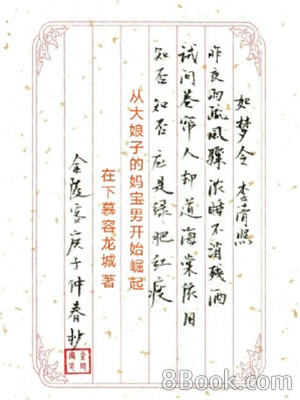 如梦令 李清照
昨夜雨疏风骤浓睡不消残酒
试问卷帘人却道海棠依旧
知否知否应是绿肥红瘦
从大娘子的妈宝男开始崛起
在下慕容龙城 著
客庚子仲春抄
8Book.com